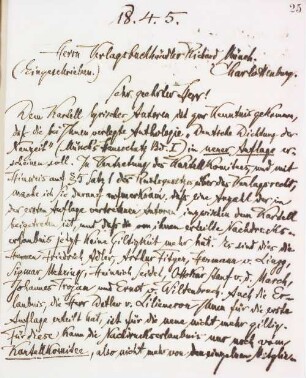 25
18. 4. 5.
Herrn Verlagsbuchhändler Richard Münch
(Eingeschrieben.) Charlottenburg.
Sehr geehrter Herr!
Dem Kartell lyrischer Autoren ist zur Kenntnis gekommen,
daß die bei Ihnen verlegte Anthologie „Deutsche Dichtung der
Neuzeit" (Bd. I) in neuer Auflage er-
scheinen soll. In Vertretung des Kartell-Komitees und mit
Hinweis auf § 25 des über das Verlagsrecht,
mache ich Sie darauf aufmerksam, daß eine Anzahl der in
der ersten Auflage vertretenen Autoren inzwischen dem Kartell
beigetreten ist, und daß die von ihnen erteilte Nachdrucks-
erlaubnis jetzt keine Giltigkeit mehr hat. Es sind dies die
Herren Friedrich Adler, Arthur Fitger, Hermann v. Lingg,
Sigmar Mehring, Heinrich Seidel, Ottokar Stauf v. d. March,
Johannes Trojan und Ernst v. Wildenbruch. Auch die Er-
laubnis, die Herr Detlev v. Liliencron Ihnen für die erste
Auflage erteilt hat, ist für die neue nicht mehr giltig.
Für diese kann die Nachdruckserlaubnis nur noch vom
Kartellkomitee, also nicht mehr von den einzelnen Mitglie-